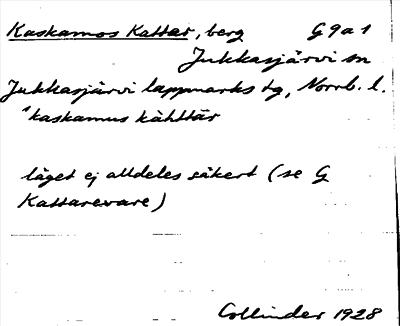 Kaskamos Kattar, berg G 9 a 1
Jukkasjärvi sn
Jukkasjärvi lappmarks tg, Norrb. l.
"kaskamus kåhttār
läget ej alldeles säkert (se G
Kattarevare)
Collinder 1928